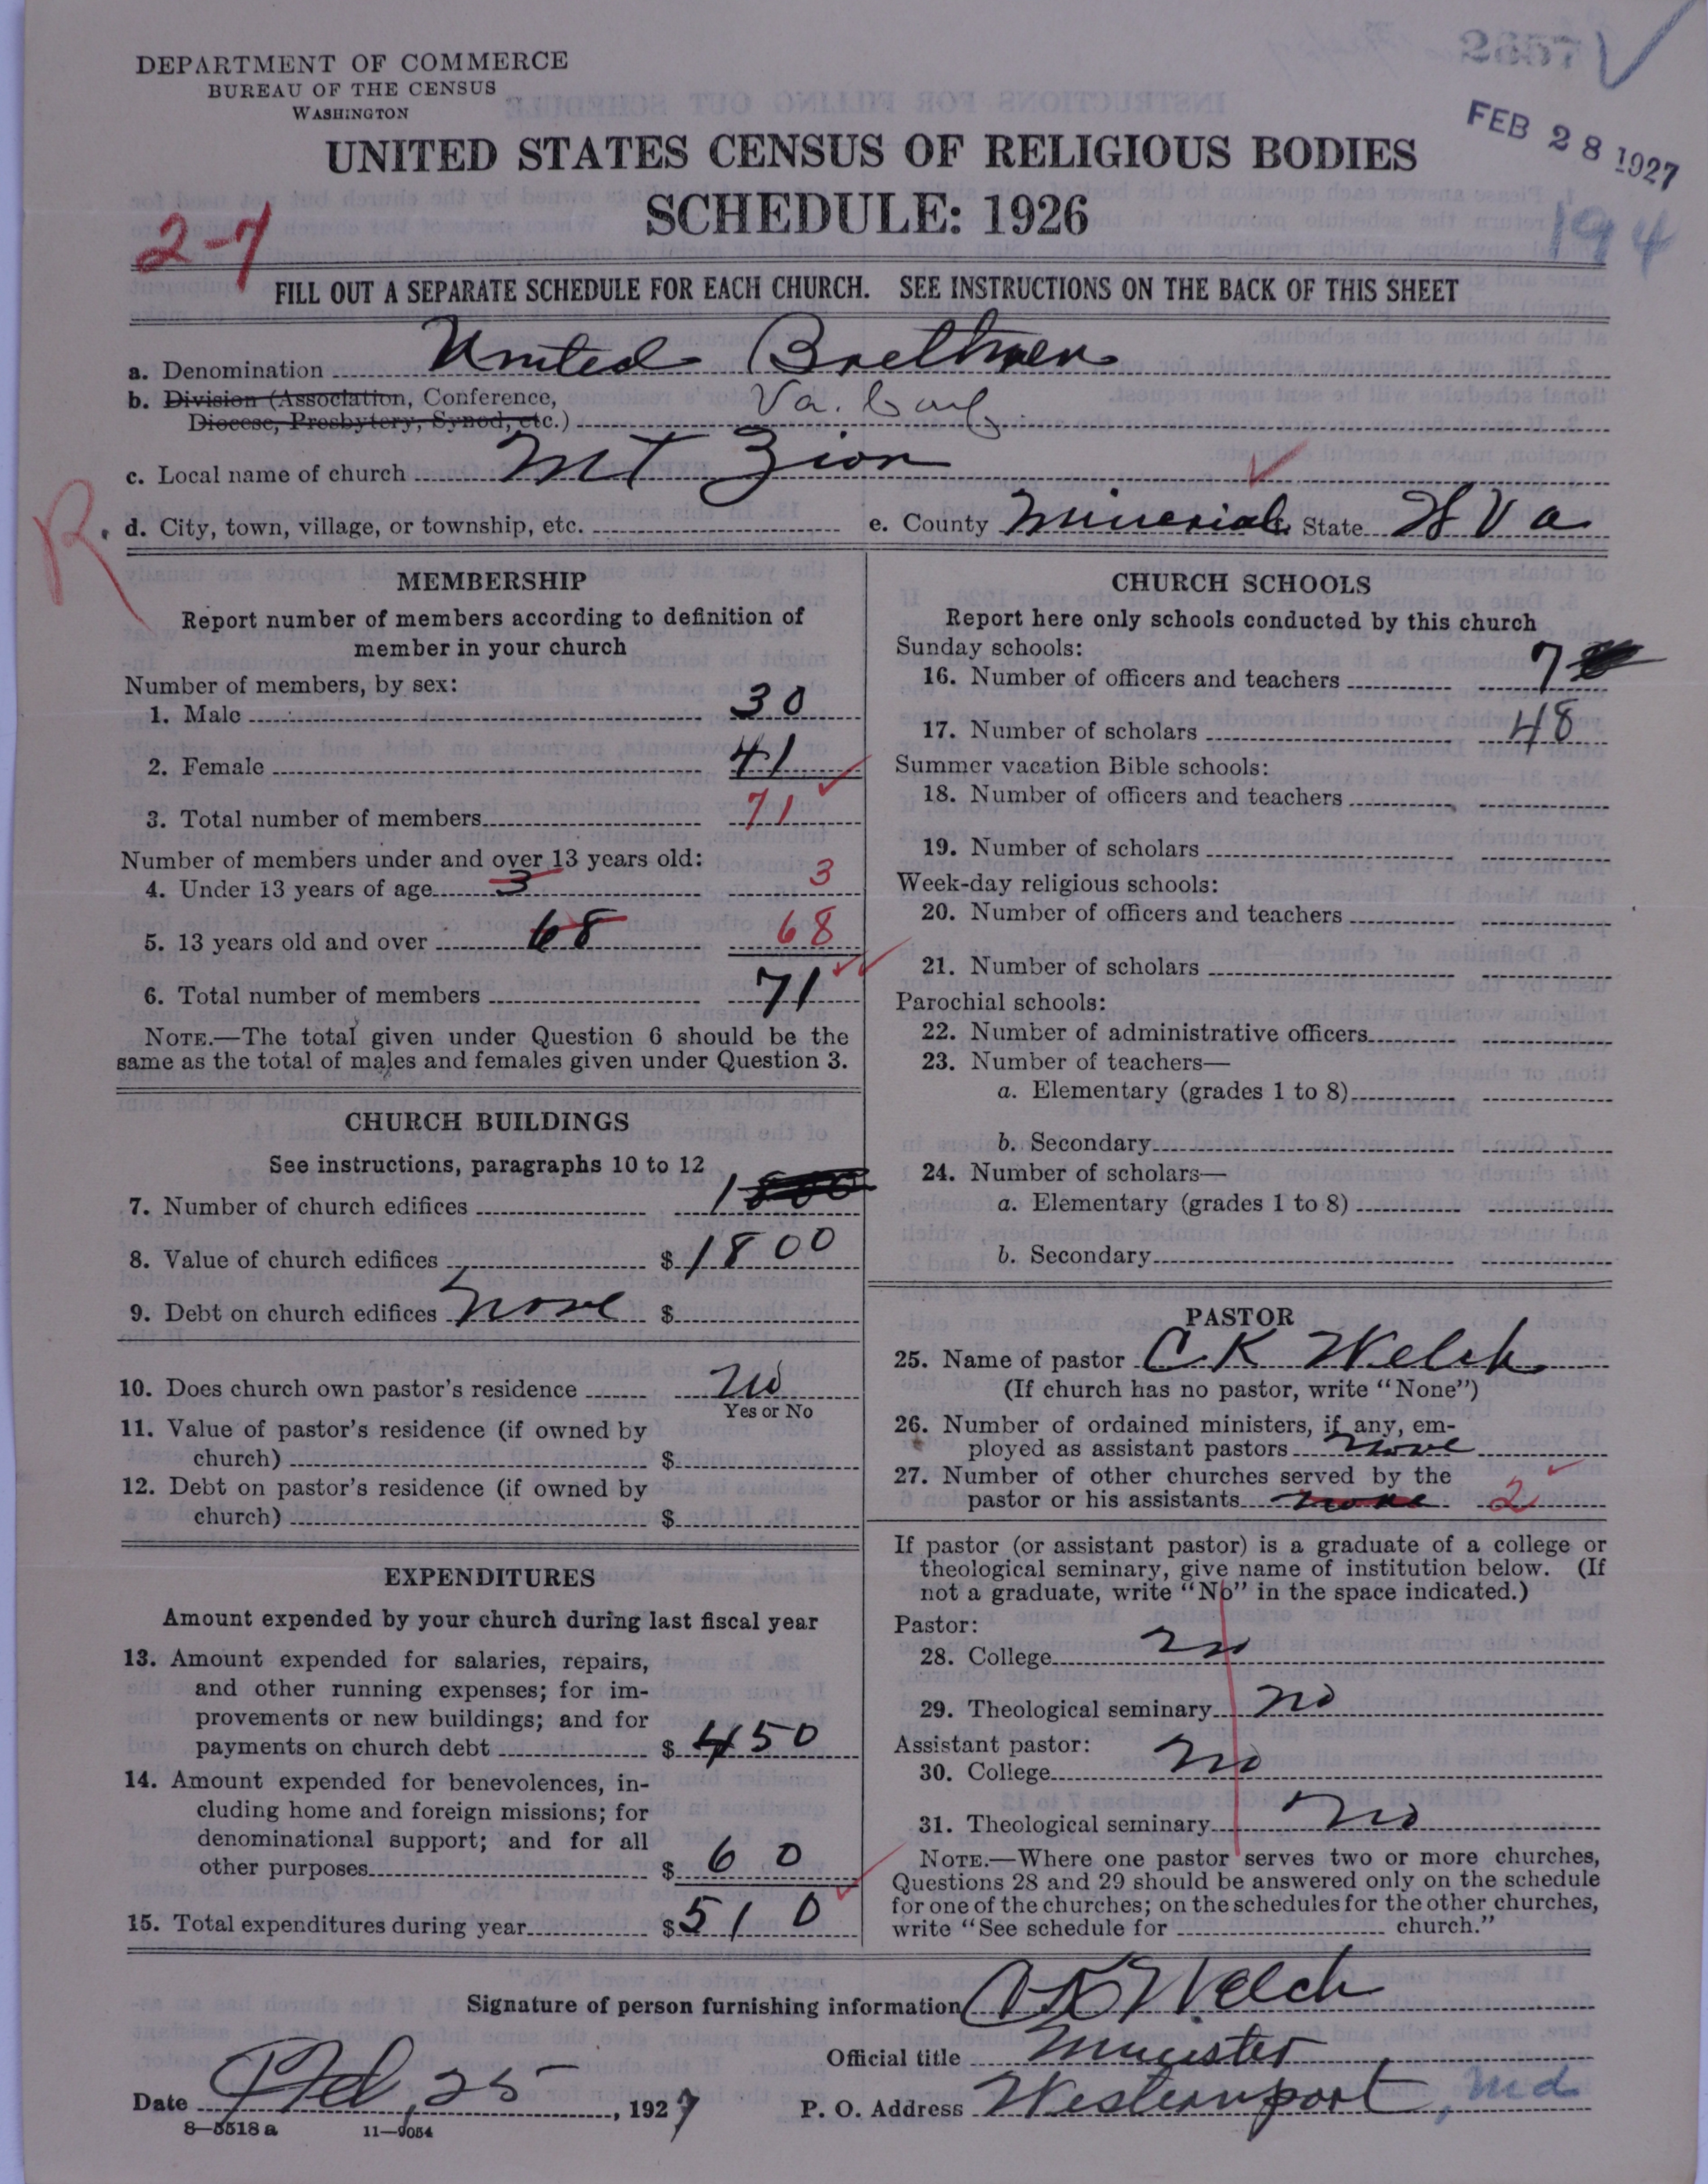 DEPARTMENT OF COMMERCE
BUREAU OF THE CENSUS
WASHINGTON
FEB 28 1927
UNITED STATES CENSUS OF RELIGIOUS BODIES
SCHEDULE: 1926
194
2-7
FILL OUT A SEPARATE SCHEDULE FOR EACH CHURCH. SEE INSTRUCTIONS ON THE BACK OF THIS SHEET
a. Denomination United Brethren
b. Division (Association, Conference, Va. Conf.
Diocese, Presbytery, Synod, etc.)
c. Local name of church Mt Zion
R. d. City, town, village, or township, etc. e. County Minerial State W Va
MEMBERSHIP
Report number of members according to definition of
member in your church
Number of members, by sex:
1. Male 30
2. Female 41
3. Total number of members 71
Number of members under and over 13 years old:
4. Under 13 years of age 3 3
5. 13 years old and over 68 68
6. Total number of members 71
NOTE.—The total given under Question 6 should be the
same as the total of males and females given under Question 3.
CHURCH BUILDINGS
See instructions, paragraphs 10 to 12
7. Number of church edifices 1
8. Value of church edifices $ 1800
9. Debt on church edifices none $
10. Does church own pastor's residence no
Yes or No
11. Value of pastor's residence (if owned by
church) $
12. Debt on pastor's residence (if owned by
church) $
EXPENDITURES
Amount expended by your church during last fiscal year
13. Amount expended for salaries, repairs,
and other running expenses; for im-
provements or new buildings; and for
payments on church debt $ 450
14. Amount expended for benevolences, in-
cluding home and foreign missions; for
denominational support; and for all
other purposes $ 60
15. Total expenditures during year $ 510
CHURCH SCHOOLS
Report here only schools conducted by this church
Sunday schools:
16. Number of officers and teachers 7
17. Number of scholars 48
Summer vacation Bible schools:
18. Number of officers and teachers
19. Number of scholars
Week-day religious schools:
20. Number of officers and teachers
21. Number of scholars
Parochial schools:
22. Number of administrative officers
23. Number of teachers—
a. Elementary (grades 1 to 8)
b. Secondary
24. Number of scholars—
a. Elementary (grades 1 to 8)
b. Secondary
PASTOR
25. Name of pastor C K Welch
(If church has no pastor, write "None")
26. Number of ordained ministers, if any, em-
ployed as assistant pastors none
27. Number of other churches served by the
pastor or his assistants none 2
If pastor (or assistant pastor) is a graduate of a college or
theological seminary, give name of institution below. (If
not a graduate, write "No" in the space indicated.)
Pastor:
28. College no
29. Theological seminary no
Assistant pastor:
30. College no
31. Theological seminary no
NOTE.—Where one pastor serves two or more churches,
Questions 28 and 29 should be answered only on the schedule
for one of the churches; on the schedules for the other churches,
write "See schedule for church."
Signature of person furnishing information C K Welch
Official title Minister
Date Feb. 25, 1927 P. O. Address Westernport, Md
8—5518 a 11—9054